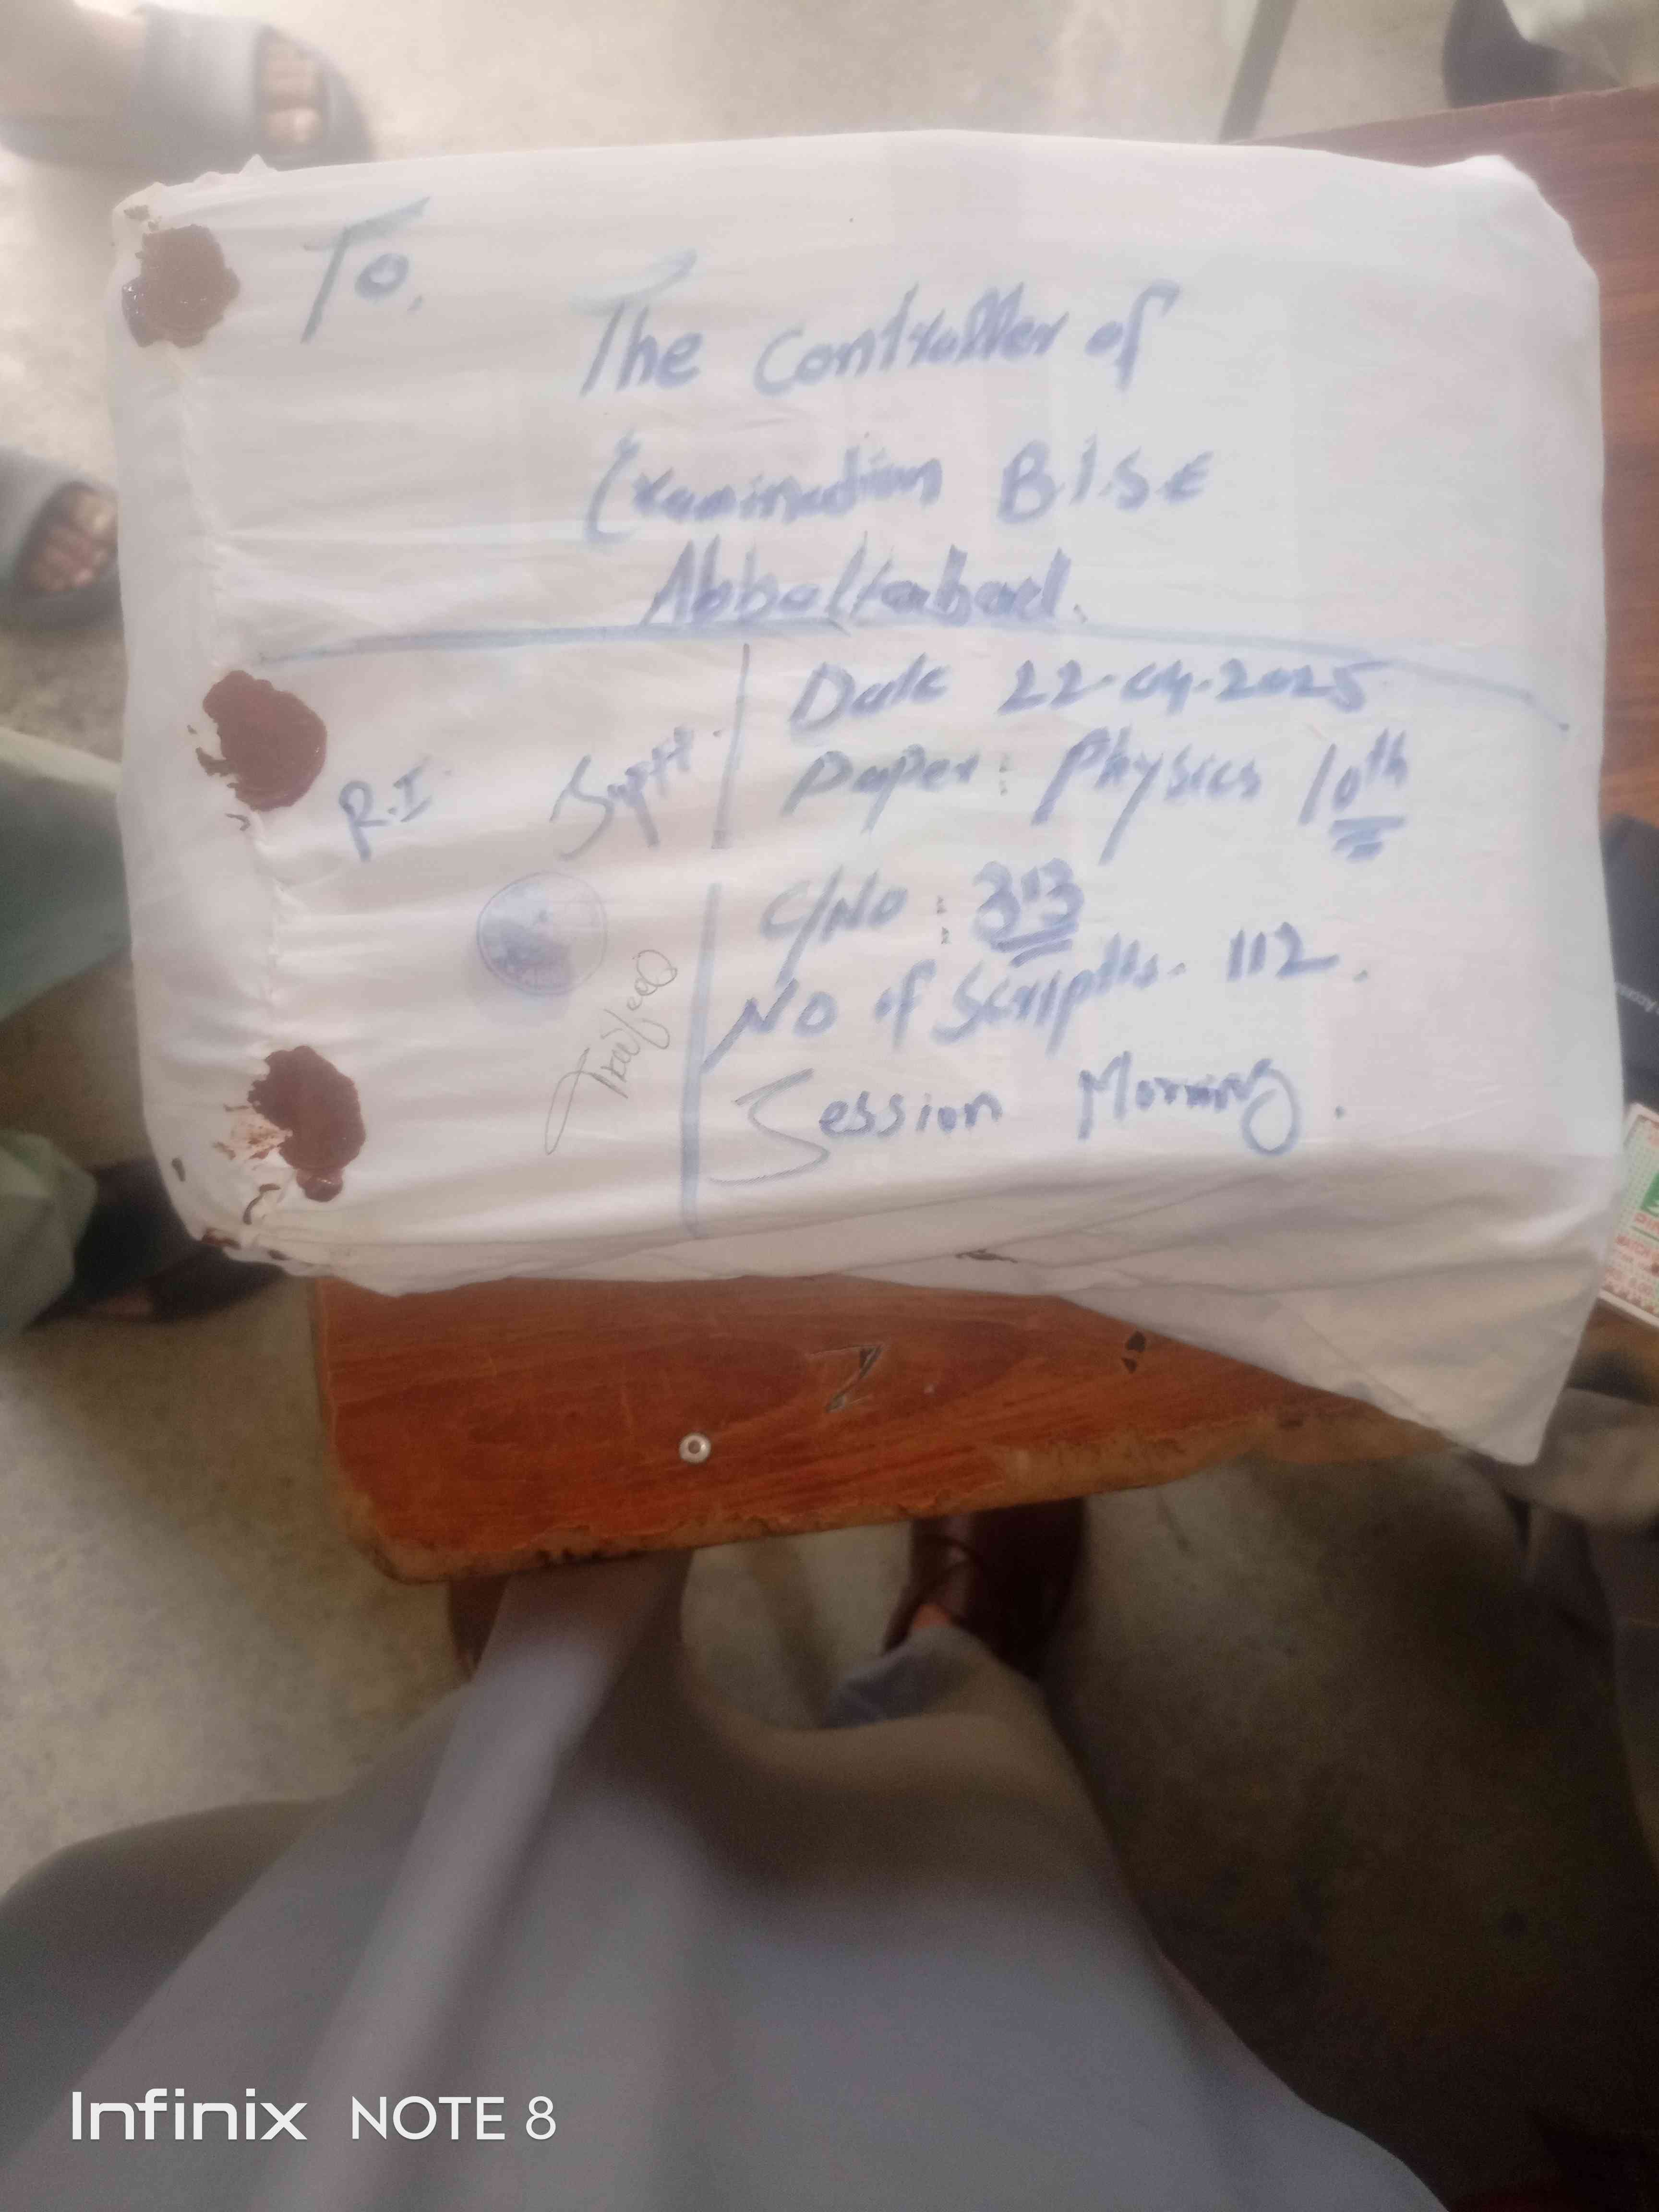 To,
The Controller of
Examination B.I.S.E
Abbottabad.
R.I
Suptt.
Date 22-04-2025
Paper: Physics 10th
C/No: 313
No of Scriptts. 112.
Session Morning.
Infinix NOTE 8